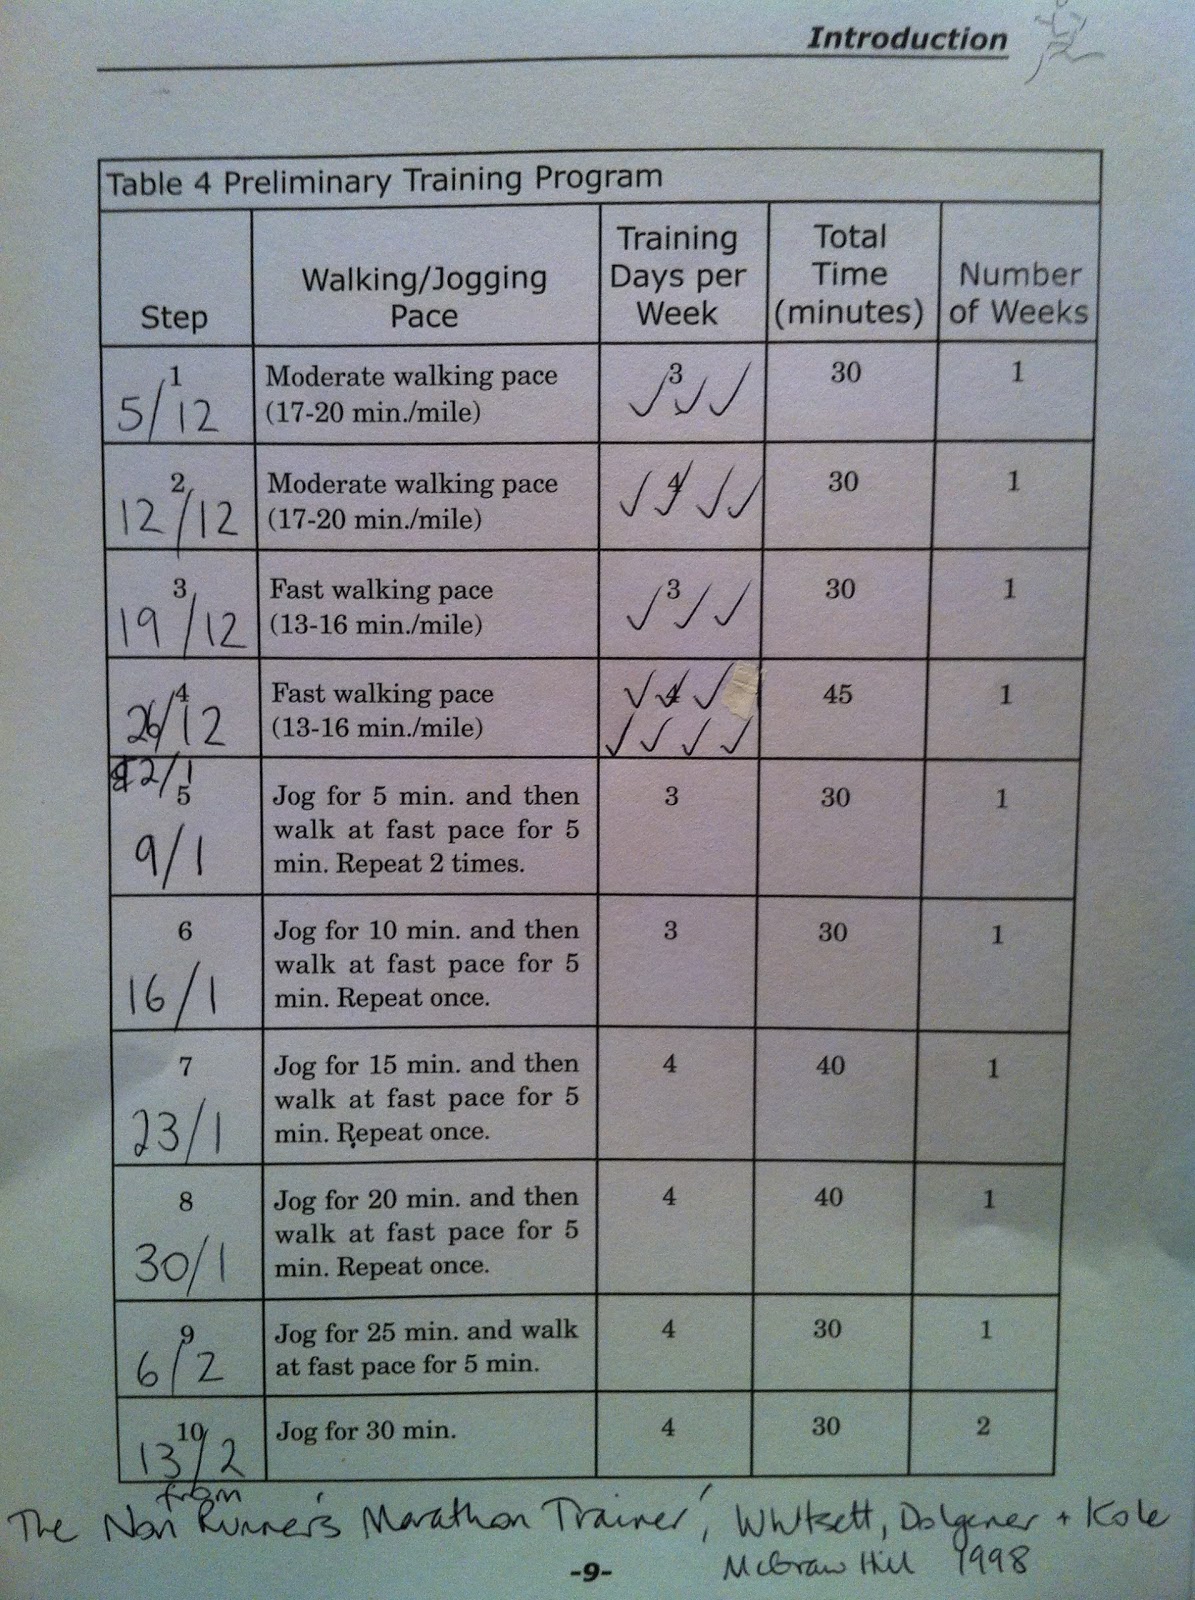 Introduction
Table 4 Preliminary Training Program
Step
Walking/Jogging
Pace
Training
Days per
Week
Total
Time
(minutes)
Number
of Weeks
1
5/12
Moderate walking pace
(17-20 min./mile)
3
✓✓✓
30
1
2
12/12
Moderate walking pace
(17-20 min./mile)
4
✓✓✓✓
30
1
3
19/12
Fast walking pace
(13-16 min./mile)
3
✓✓✓
30
1
4
26/12
Fast walking pace
(13-16 min./mile)
4
✓✓✓
✓✓✓✓
45
1
2/1
5
9/1
Jog for 5 min. and then
walk at fast pace for 5
min. Repeat 2 times.
3
30
1
6
16/1
Jog for 10 min. and then
walk at fast pace for 5
min. Repeat once.
3
30
1
7
23/1
Jog for 15 min. and then
walk at fast pace for 5
min. Repeat once.
4
40
1
8
30/1
Jog for 20 min. and then
walk at fast pace for 5
min. Repeat once.
4
40
1
9
6/2
Jog for 25 min. and walk
at fast pace for 5 min.
4
30
1
10
13/2
Jog for 30 min.
4
30
2
from
The Non Runner's Marathon Trainer', Whitsett, Dolgener + Kole
McGraw Hill 1998
-9-